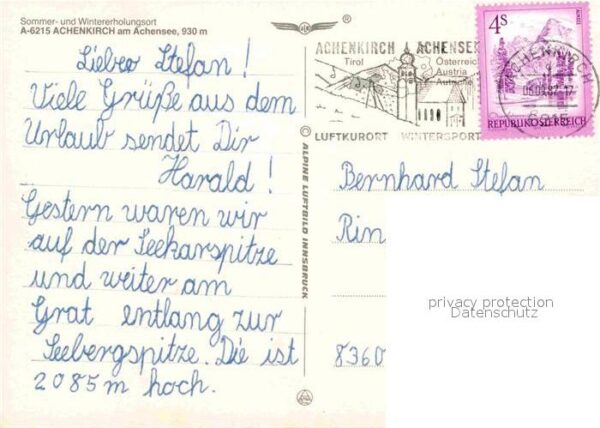 Sommer- und Wintererholungsort
A-6215 ACHENKIRCH am Achensee, 930 m
Lieber Stefan!
Viele Grüße aus dem
Urlaub sendet Dir
Harald!
Gestern waren wir
auf der Seekarspitze
und weiter am
Grat entlang zur
Seebergspitze. Die ist
2085m hoch.
© ALPINE LUFTBILD INNSBRUCK
ACHENKIRCH ACHENSEE
Tirol
Österreich
Austria
Autriche
LUFTKURORT WINTERSPORT
4S
REPUBLIK ÖSTERREICH
ACHENKIRCH
6215
Bernhard Stefan
Rin
8360
privacy protection
Datenschutz